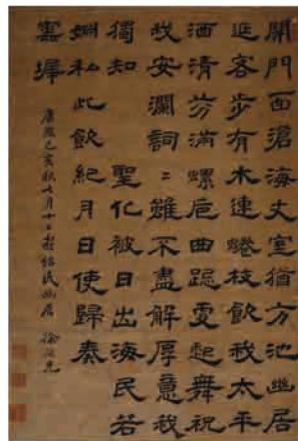 開門面滄海丈室猶方池幽居
延客步有木連蜷枝飲我太平
酒清芬滿螺卮曲跽更起舞祝
我安瀾詞詞雖不盡解厚意我
獨知 聖化被日出海民若
婣私此飲紀月日使歸奏
丹墀
康熙己亥秋七月十
幽居 徐葆光